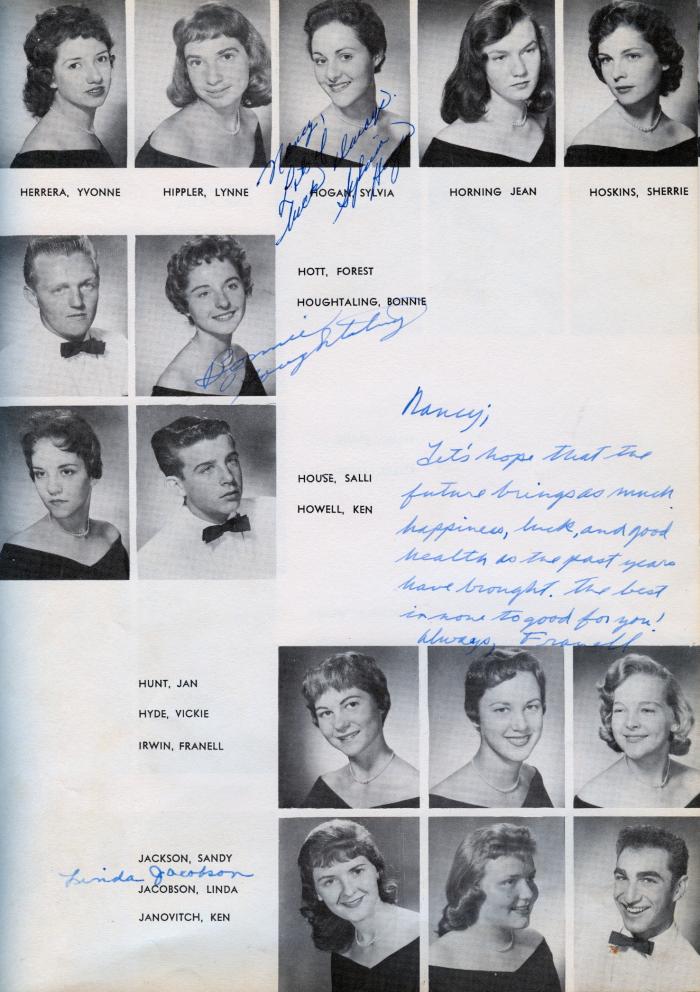 HERRERA, YVONNE
HIPPLER, LYNNE
HOGAN, SYLVIA
HORNING JEAN
HOSKINS, SHERRIE
Nancy,
Lots of
luck always.
Sylvia
Hogan
HOTT, FOREST
HOUGHTALING, BONNIE
Bonnie
Houghtaling
Nancy;
Let's hope that the
future brings as much
happiness, luck, and good
health as the past years
have brought. The best
is none to good for you!
Always, Franell
HOUSE, SALLI
HOWELL, KEN
HUNT, JAN
HYDE, VICKIE
IRWIN, FRANELL
JACKSON, SANDY
Linda Jacobson
JACOBSON, LINDA
JANOVITCH, KEN